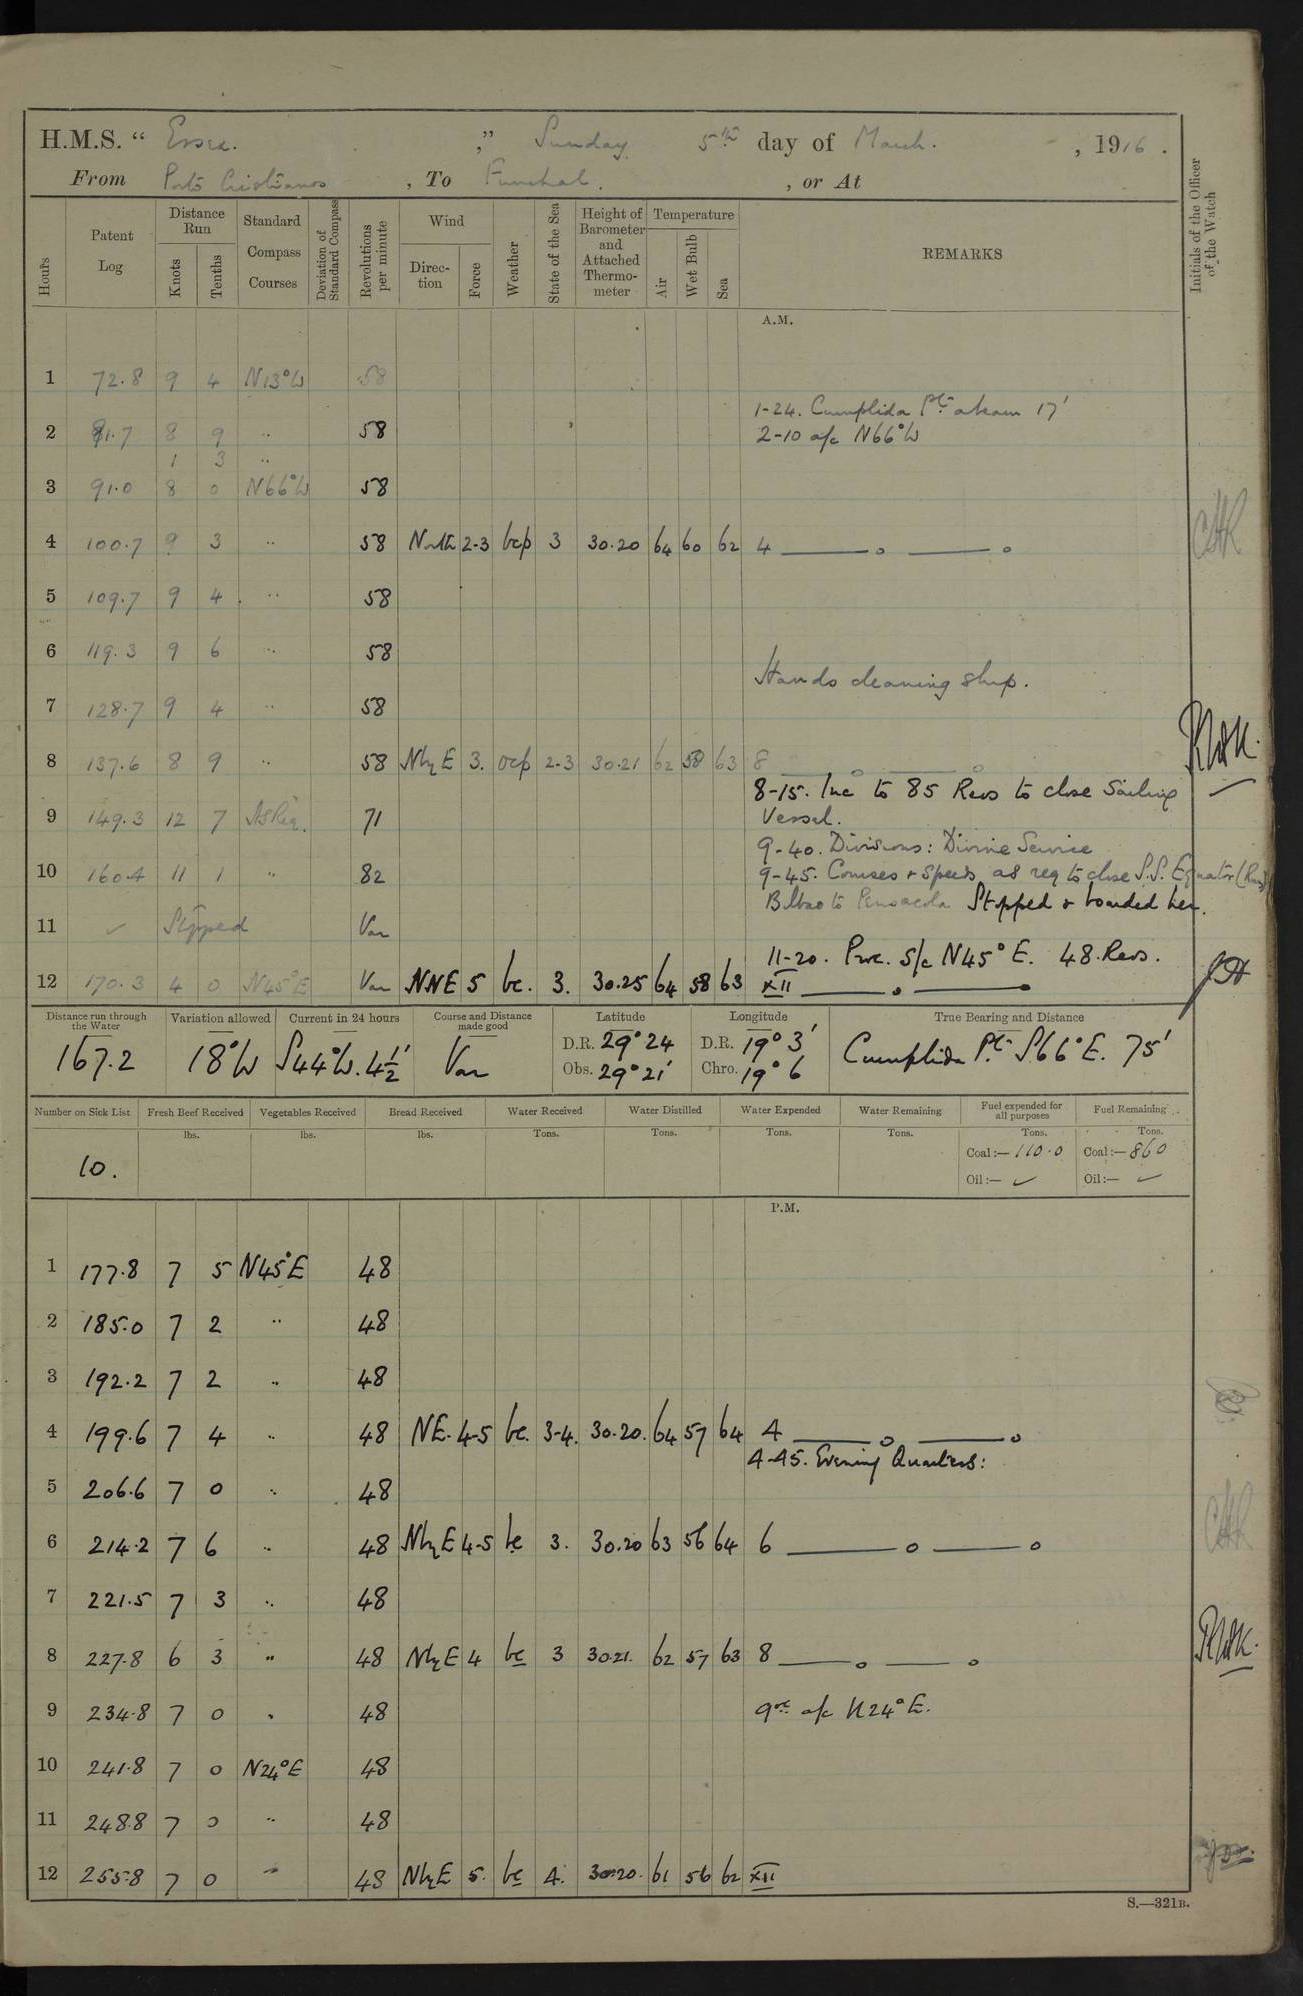 H.M.S. “ Essex. ,” Sunday 5th day of March. , 1916 .
From Porto Cristianos , To Funchal. , or At
Hours
Patent Log
Distance Run
Knots
Tenths
Standard Compass Courses
Deviation of Standard Compass
Revolutions per minute
Wind
Direc-tion
Force
Weather
State of the Sea
Height of Barometer and Attached Thermo-meter
Temperature
Air
Wet Bulb
Sea
REMARKS
Initials of the Officer of the Watch
A.M.
1 72.8 9 4 N13°W 58
1-24. Cumplida Pt abeam 17'
2 81.7 8 9 " 58 2-10 a/c N66°W
1 3 "
3 91.0 8 0 N66°W 58
4 100.7 9 3 " 58 North 2-3 bcp 3 30.20 64 60 62 4
5 109.7 9 4 " 58
6 119.3 9 6 " 58
Hands cleaning ship.
7 128.7 9 4 " 58
8 137.6 8 9 " 58 NbyE 3. ocp 2-3 30.21 62 58 63 8
8-15. Inc to 85 Revs to close Sailing
9 149.3 12 7 AsReq. 71 Vessel.
9-40. Divisions: Divine Service
10 160.4 11 1 " 82 9-45. Courses & Speeds as req to close S.S. Equator (Rus)
Bilbao to Pensacola Stopped & boarded her.
11 ✓ Stopped Var
11-20. Proc. S/c N45°E. 48.Revs.
12 170.3 4 0 N45°E Var NNE 5 bc. 3. 30.25 64 58 63 XII
Distance run through the Water
Variation allowed
Current in 24 hours
Course and Distance made good
Latitude
Longitude
True Bearing and Distance
167.2 18°W S44°W. 4½' Var D.R. 29°24 D.R. 19°3' Cumplida Pt S66°E. 75'
Obs. 29°21' Chro. 19°6
Number on Sick List
Fresh Beef Received
Vegetables Received
Bread Received
Water Received
Water Distilled
Water Expended
Water Remaining
Fuel expended for all purposes
Fuel Remaining
lbs. lbs. lbs. Tons. Tons. Tons. Tons. Tons. Tons.
10. Coal:— 110.0 Coal:— 860
Oil:— ✓ Oil:— ✓
P.M.
1 177.8 7 5 N45°E 48
2 185.0 7 2 " 48
3 192.2 7 2 " 48
4 199.6 7 4 " 48 NE. 4-5 bc. 3-4. 30.20. 64 57 64 4
4-45. Evening Quarters:
5 206.6 7 0 " 48
6 214.2 7 6 " 48 NbyE 4-5 bc 3. 30.20 63 56 64 6
7 221.5 7 3 " 48
8 227.8 6 3 " 48 NbyE 4 bc 3 30.21. 62 57 63 8
9 234.8 7 0 " 48 9.00 a/c N24°E.
10 241.8 7 0 N24°E 48
11 248.8 7 0 " 48
12 255.8 7 0 " 48 NbyE 5. bc 4. 30.20. 61 56 62 XII
S.—321B.